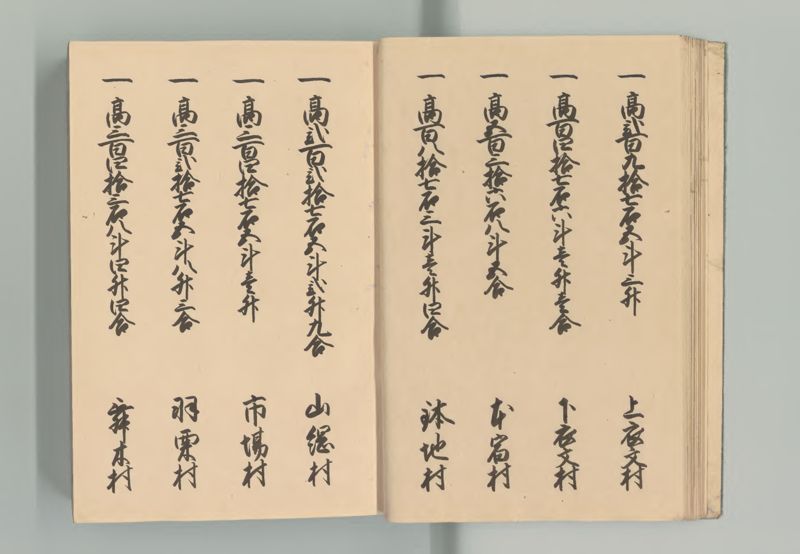 一 高弐百九拾七石五斗三升 上衣文村
一 高百四拾七石六斗壱升壱合 下衣文村
一 高五百三拾六石八斗五合 本宿村
一 高百八拾七石三斗壱升四合 鉢地村
一 高弐百弐拾七石五斗弐升九合 山綱村
一 高三百四拾七石五斗壱升 市場村
一 高三百弐拾七石五斗八升三合 羽栗村
一 高三百四拾三石八斗四升四合 舞木村